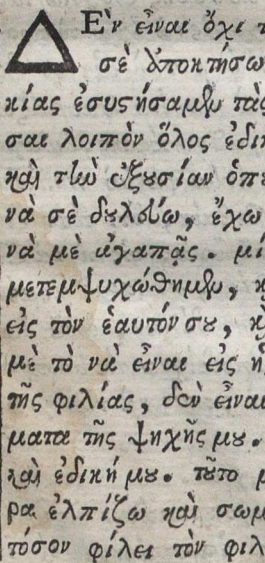 ΔΕὺ εἶναι ὄχι τ
σὲ ἀποκτήσω
κίας ἐσυςήσαμἳυ τὰς
σαι λοιπὸν ὅλος ἐδικ
καὶ τἱὼ ἐξουσίαν ὁπ
νὰ σὲ δουλεύω, ἔχω
νὰ μὲ ἀγαπᾷς. μί
μετεμψυχώθημεν,
εἰς τὸν ἑαυτόν σου,
μὲ τὸ νὰ εἶναι εἰς ἡ
τῆς φιλίας, δὲν εἶναι
ματα τῆς ψηχῆς μου.
καὶ ἐδική μου. τοῦτο
ρα ἐλπίζω καὶ σωμ
τόσον φίλει τὸν φιλ